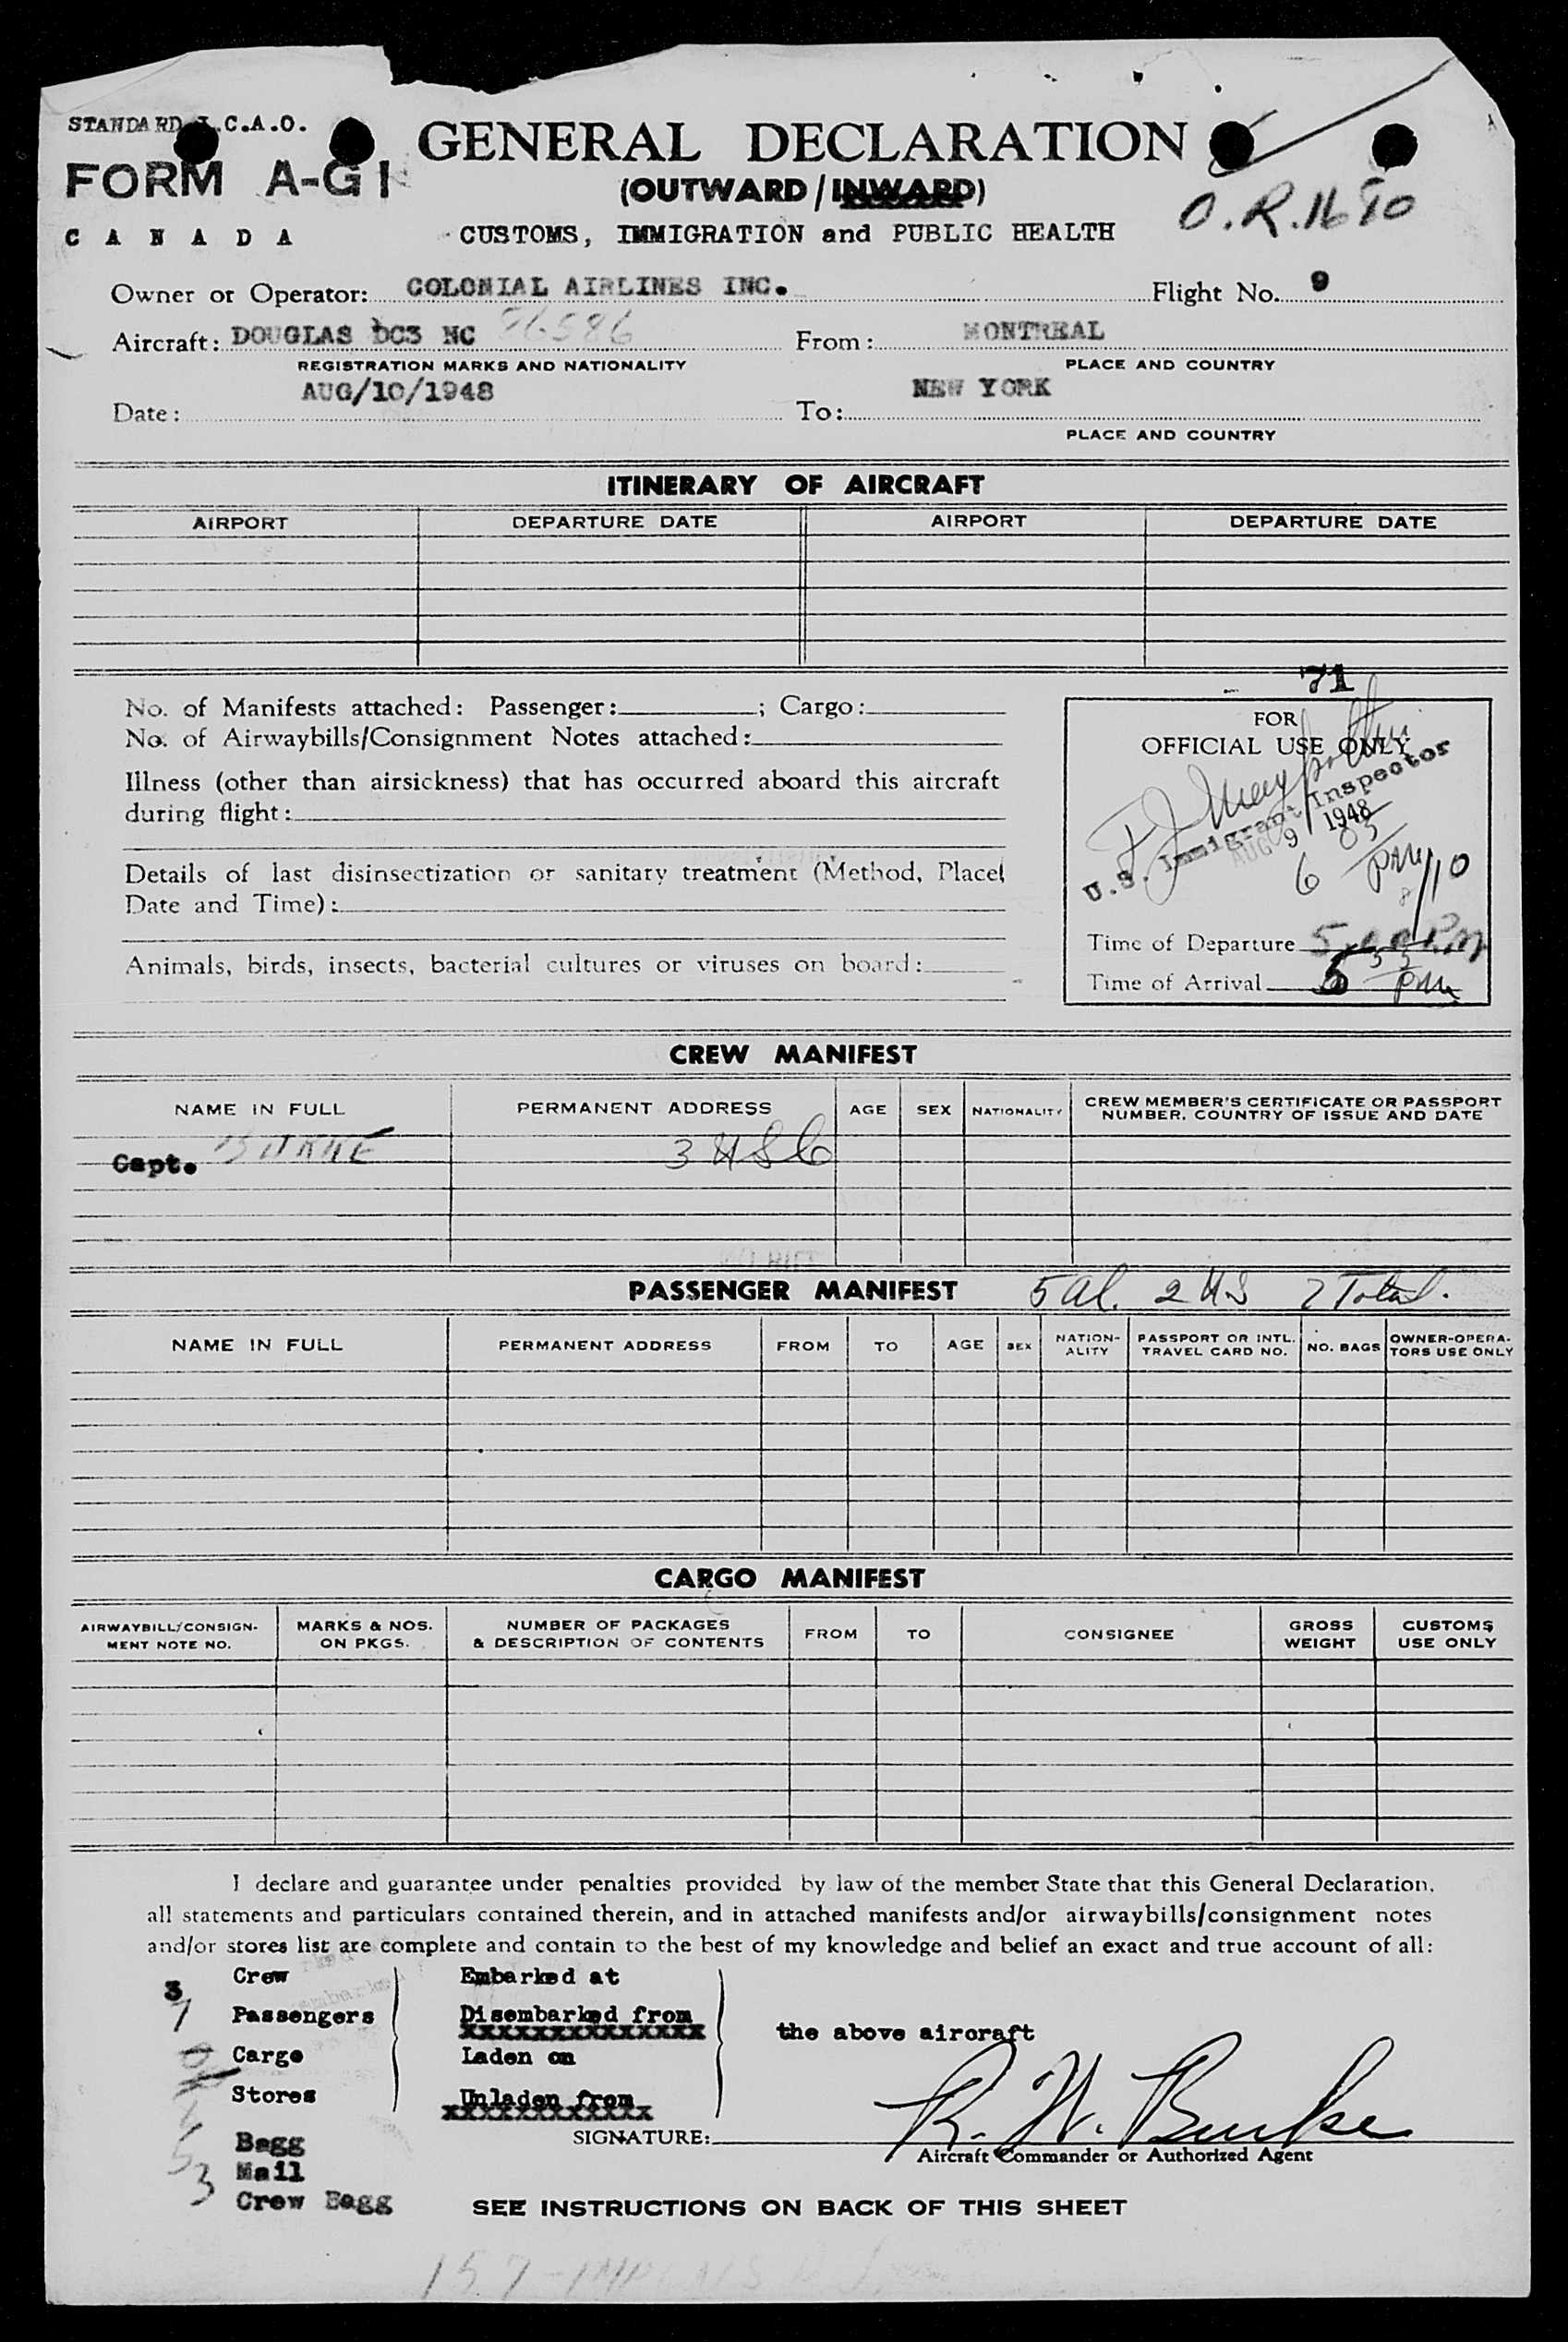 STANDARD I.C.A.O.
FORM A-G1
CANADA
GENERAL DECLARATION
(OUTWARD/INWARD)
CUSTOMS, IMMIGRATION and PUBLIC HEALTH
O.R.
Owner or Operator: COLONIAL AIRLINES INC. Flight No. 9
Aircraft: DOUGLAS DC3 NC 86586 From: MONTREAL
REGISTRATION MARKS AND NATIONALITY PLACE AND COUNTRY
Date: AUG/10/1948 To: NEW YORK
PLACE AND COUNTRY
ITINERARY OF AIRCRAFT
AIRPORT DEPARTURE DATE AIRPORT DEPARTURE DATE
71
No. of Manifests attached: Passenger: ; Cargo:
No. of Airwaybills/Consignment Notes attached:
Illness (other than airsickness) that has occurred aboard this aircraft
during flight:
Details of last disinsectization or sanitary treatment (Method, Place,
Date and Time):
Animals, birds, insects, bacterial cultures or viruses on board:
FOR
OFFICIAL USE ONLY
U.S. Immigrant Inspector
AUG 9 1948
6 05 PM
8/10
Time of Departure 5 PM
Time of Arrival 5 55 PM
CREW MANIFEST
NAME IN FULL PERMANENT ADDRESS AGE SEX NATIONALITY CREW MEMBER'S CERTIFICATE OR PASSPORT
NUMBER, COUNTRY OF ISSUE AND DATE
Capt. BURKE 3 US C
PASSENGER MANIFEST 5 al. 2 US 7 Total.
NAME IN FULL PERMANENT ADDRESS FROM TO AGE SEX NATION-
ALITY PASSPORT OR INTL.
TRAVEL CARD NO. NO. BAGS OWNER-OPERA-
TORS USE ONLY
CARGO MANIFEST
AIRWAYBILL/CONSIGN-
MENT NOTE NO. MARKS & NOS.
ON PKGS. NUMBER OF PACKAGES
& DESCRIPTION OF CONTENTS FROM TO CONSIGNEE GROSS
WEIGHT CUSTOMS
USE ONLY
I declare and guarantee under penalties provided by law of the member State that this General Declaration,
all statements and particulars contained therein, and in attached manifests and/or airwaybills/consignment notes
and/or stores list are complete and contain to the best of my knowledge and belief an exact and true account of all:
3 Crew Embarked at
7 Passengers Disembarked from
the above aircraft
Cargo Laden on
Stores Unladen from
SIGNATURE: R. W. Burke
Aircraft Commander or Authorized Agent
Bagg
5 Mail
3 Crew Bagg
SEE INSTRUCTIONS ON BACK OF THIS SHEET